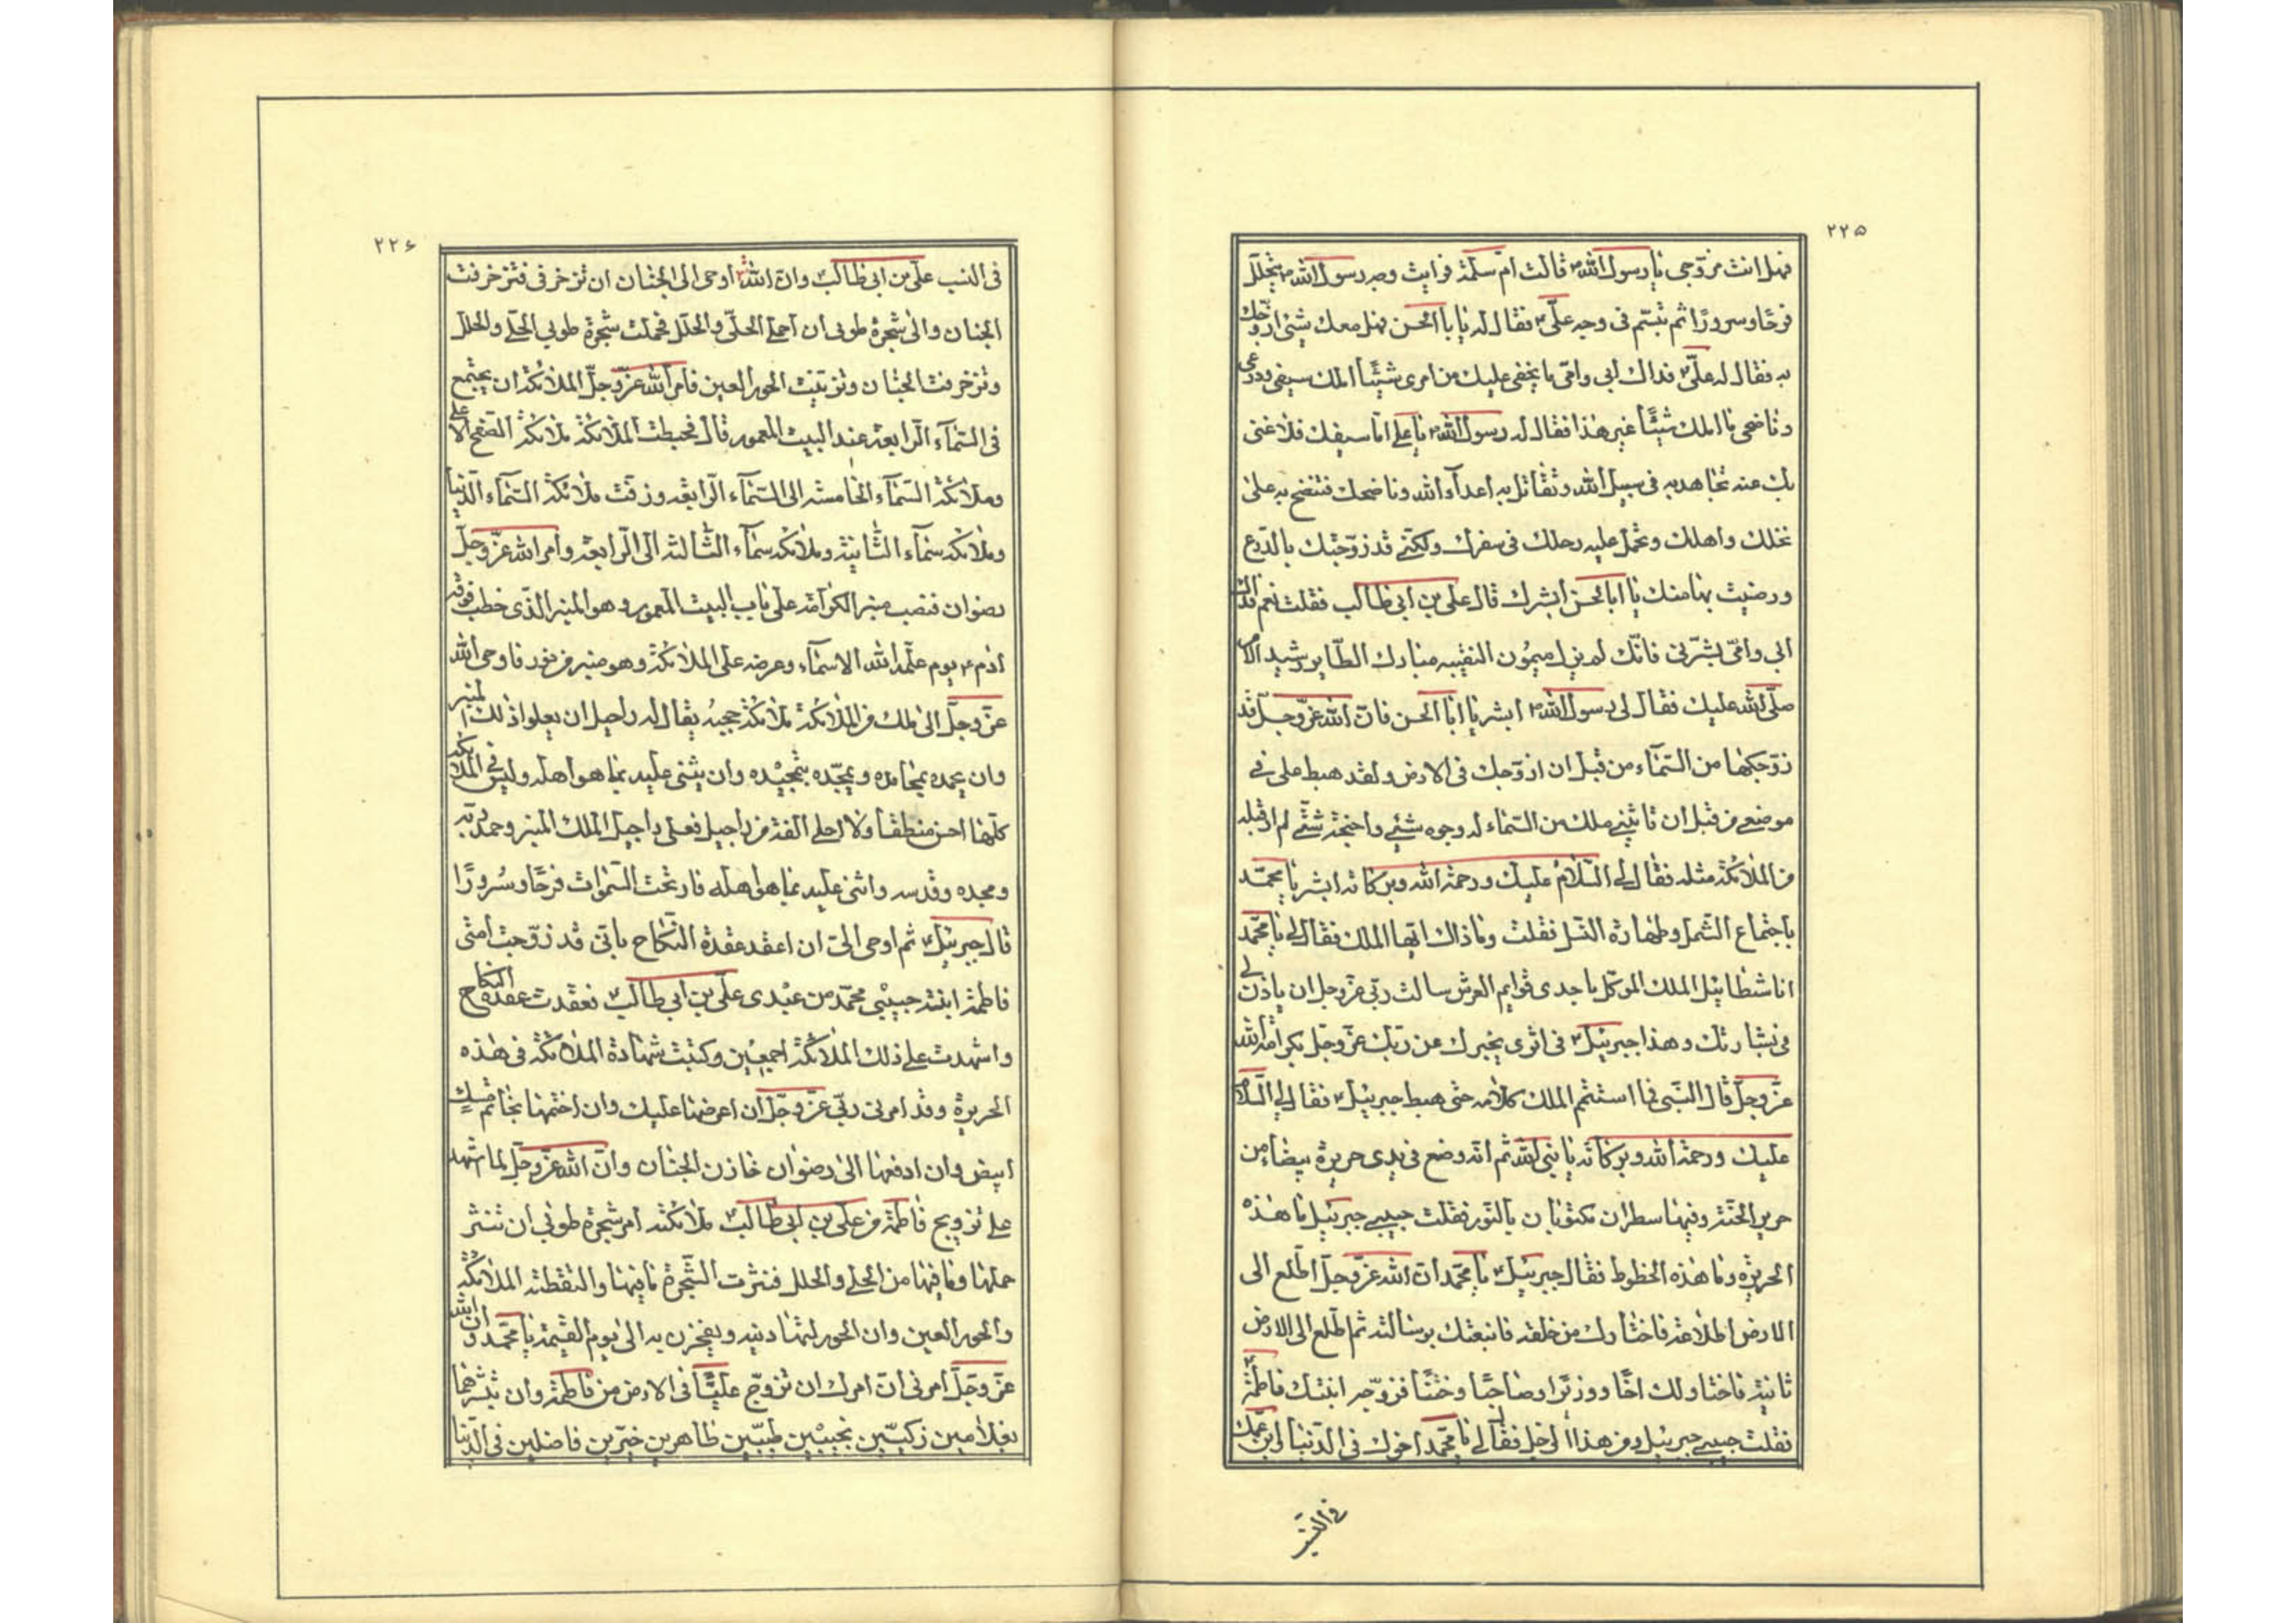 ٢٢٥
فهل انت مزوّجي يا رسول الله ص قالت امّ سلمة فرايت وجه رسول الله ص يتهلّل
فرحًا وسرورًا ثم تبسّم في وجه عليّ ع فقال له يا ابا الحسن فهل معك شيئ ازوّجك
به فقال له عليّ ع فداك ابي وامّي ما يخفى عليك من امري شيئًا املك سيفي ودرعي
وناضحي ما املك شيئًا غير هذا فقال له رسول الله ص يا علي امّا سيفك فلا غنى
بك عنه تجاهد به في سبيل الله وتقاتل به اعداء الله وناضحك فتنضح به على
نخلك واهلك وتحمل عليه رحلك في سفرك ولكنّي قد زوّجتك بالدّرع
ورضيت بها منك يا ابا الحسن ابشرك قال علي بن ابي طالب فقلت نعم فداك
ابي وامّي بشّرني فانّك لم يزل ميمون النقيبه مبارك الطّاير رشيد الامر
صلّى الله عليك فقال لي رسول الله ص ابشر يا ابا الحسن فانّ الله عزّ وجلّ قد
زوّجكها من السّماء من قبل ان ازوّجك في الارض ولقد هبط علي في
موضعي من قبل ان تاتيني ملك من السّماء له وجوه شتّى واجنحة شتّى لم ار قبله
من الملائكة مثله فقال لي السّلام عليك ورحمة الله وبركاته ابشر يا محمّد
باجتماع الشّمل وطهارة النّسل فقلت وما ذاك ايّها الملك فقال لي يا محمّد
انا شطائيل الملك الموكّل باحدى قوايم العرش سالت ربّي عزّ وجل ان ياذن لي
في بشارتك وهذا جبرئيل ع في اثري يخبرك عن ربّك عزّ وجلّ بكرامة الله
عزّ وجلّ قال النّبي فما استتم الملك كلامه حتى هبط جبرئيل ع فقال لي السّلام
عليك ورحمة الله وبركاته يا نبي الله ثم انّه وضع في يدي حريرة بيضاء من
حرير الجنّة وفيها سطران مكتوبان بالنّور فقلت حبيبي جبرئيل ما هذه
الحريرة وما هذه الخطوط فقال جبرئيل ع يا محمّد انّ الله عزّ وجلّ اطّلع الى
الارض اطلاعة فاختارك من خلقه فانبعثك برسالته ثم اطّلع الى الارض
ثانية فاختار لك اخًا ووزيرًا وصاحبًا وختنًا فزوّجه ابنتك فاطمة ع
فقلت حبيبي جبرئيل ومن هذا الرجل فقال لي يا محمّد اخوك في الدّنيا ابن عمّك
في النّسب
٢٢٦
في النسب علي بن ابي طالب ع وانّ الله اوحى الى الجنان ان تزخرفي فتزخرفت
الجنان والى شجرة طوبى ان احملي الحلّي والحلل فحملت شجرة طوبى الحلي والحلل
وتزخرفت الجنان وتزيّنت الحور العين فامر الله عزّ وجلّ الملائكة ان يجتمع
في السّماء الرّابعة عند البيت المعمور قال فهبطت الملائكة ملائكة الصّفح الاعلى
وملائكة السّماء الخامسة الى السّماء الرّابعة وزفت ملائكة السّماء الدّنيا
وملائكة سماء الثّانية وملائكة سماء الثّالثة الى الرّابعة وامر الله عزّ وجلّ
رضوان فنصب منبر الكرامة على باب البيت المعمور وهو المنبر الذّي خطب فوقه
ادم ع يوم علّمه الله الاسماء وعرضه على الملائكة وهو منبر من نور فاوحى الله
عزّ وجلّ الى ملك من الملائكة ملائكة حجبه يقال له راحيل ان يعلوا ذلك المنبر
وان يحمده بمحامده ويمجّده بتمجيده وان يثني عليه بما هو اهله وليس في الملائكة
كلّها احسن منطقًا ولا احلى الفة من راحيل فعلى راحيل الملك المنبر وحمد ربّه
ومجده وقدسه واثنى عليه بما هو اهله فارتجّت السّموات فرحًا وسُرورًا
قال جبرئيل ع ثم اوحى اليّ ان اعقد عقدة النّكاح بانّي قد زوّجت امتي
فاطمة ابنة حبيبي محمّد من عبدي علي بن ابي طالب ع فعقدت عقدة النكاح
واشهدت على ذلك الملائكة اجمعين وكتبت شهادة الملائكة في هذه
الحريرة وقد امرني ربّي عزّ وجلّ ان اعرضها عليك وان اختمها بخاتم مسك
ابيض وان ادفعها الى رضوان خازن الجنان وانّ الله عزّ وجلّ لما اشهد
على تزويج فاطمة من علي بن ابي طالب ع ملائكته امر شجرة طوبى ان تنثر
حملها وما فيها من الحلي والحلل فنثرت الشّجرة ما فيها والتقطته الملائكة
والحور العين وان الحور ليتهادينه ويفخرن به الى يوم القيمة يا محمّد وان الله
عزّ وجلّ امرني ان امرك ان تزوّج عليًّا في الارض من فاطمة وان تبشّرهما
بغلامين زكيّين نجيبين طيّبين طاهرين خيّرين فاضلين في الدّنيا